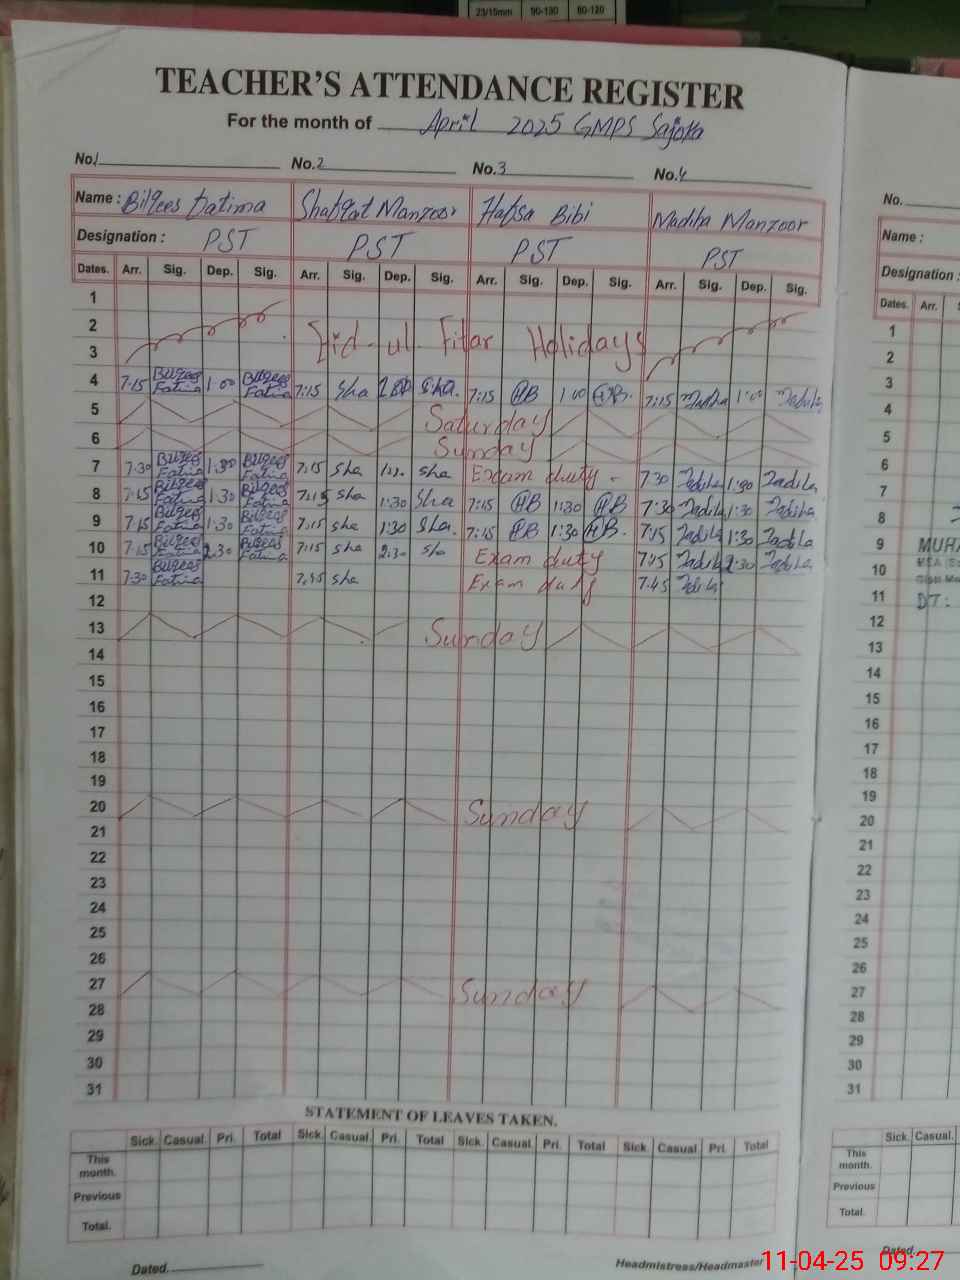 23/15mm 90-130 80-120
TEACHER'S ATTENDANCE REGISTER
For the month of April 2025 GMPS Sajoka
No.1 No.2 No.3 No.4
No.
Name : Bilqees Fatima Shafqat Manzoor Hafsa Bibi Madiha Manzoor
Name :
Designation : PST PST PST PST
Designation :
Dates. Arr. Sig. Dep. Sig. Arr. Sig. Dep. Sig. Arr. Sig. Dep. Sig. Arr. Sig. Dep. Sig.
Dates. Arr.
1
2 Eid-ul-Fitar Holidays
3
4 7:15 Bilqees Fatima 1:00 Bilqees Fatima 7:15 Sha Sha. 7:15 HB 1:00 HB. 7:15 1:00
5 Saturday
6 Sunday
7 7:30 Bilqees Fatima 1:30 Bilqees Fatima 7:15 Sha Sha Exam duty - 7:30 1:30
8 7:15 Bilqees Fatima 1:30 Bilqees Fatima 7:15 Sha 1:30 Sha 7:15 HB 1:30 HB 7:30 1:30
9 7:15 Bilqees Fatima 1:30 Bilqees Fatima 7:15 Sha 1:30 Sha. 7:15 HB 1:30 HB. 7:15 1:30
10 7:15 Bilqees Fatima 2:30 Bilqees Fatima 7:15 Sha 2:30 Sha Exam duty 7:45 2:30
11 7:30 Bilqees Fatima 7:45 Sha Exam duty 7:45
12
13 Sunday
14
15
16
17
18
19
20 Sunday
21
22
23
24
25
26
27 Sunday
28
29
30
31
1
2
3
4
5
6
7
8
9 MUHA
10
11 DT:
12
13
14
15
16
17
18
19
20
21
22
23
24
25
26
27
28
29
30
31
STATEMENT OF LEAVES TAKEN.
Sick. Casual. Pri. Total Sick. Casual. Pri. Total Sick. Casual. Pri. Total Sick. Casual. Pri. Total
This month.
Previous
Total.
Sick. Casual.
This month.
Previous
Total.
Dated. Headmistress/Headmaster
Dated.
11-04-25 09:27